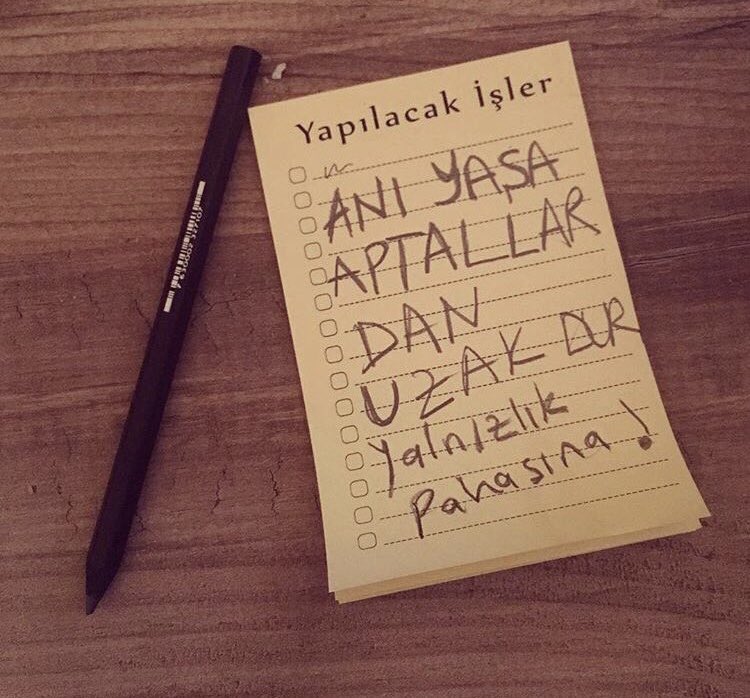 Yapılacak İşler
ANI YAŞA
APTALLAR
DAN
UZAK DUR
Yalnızlık
Pahasına!